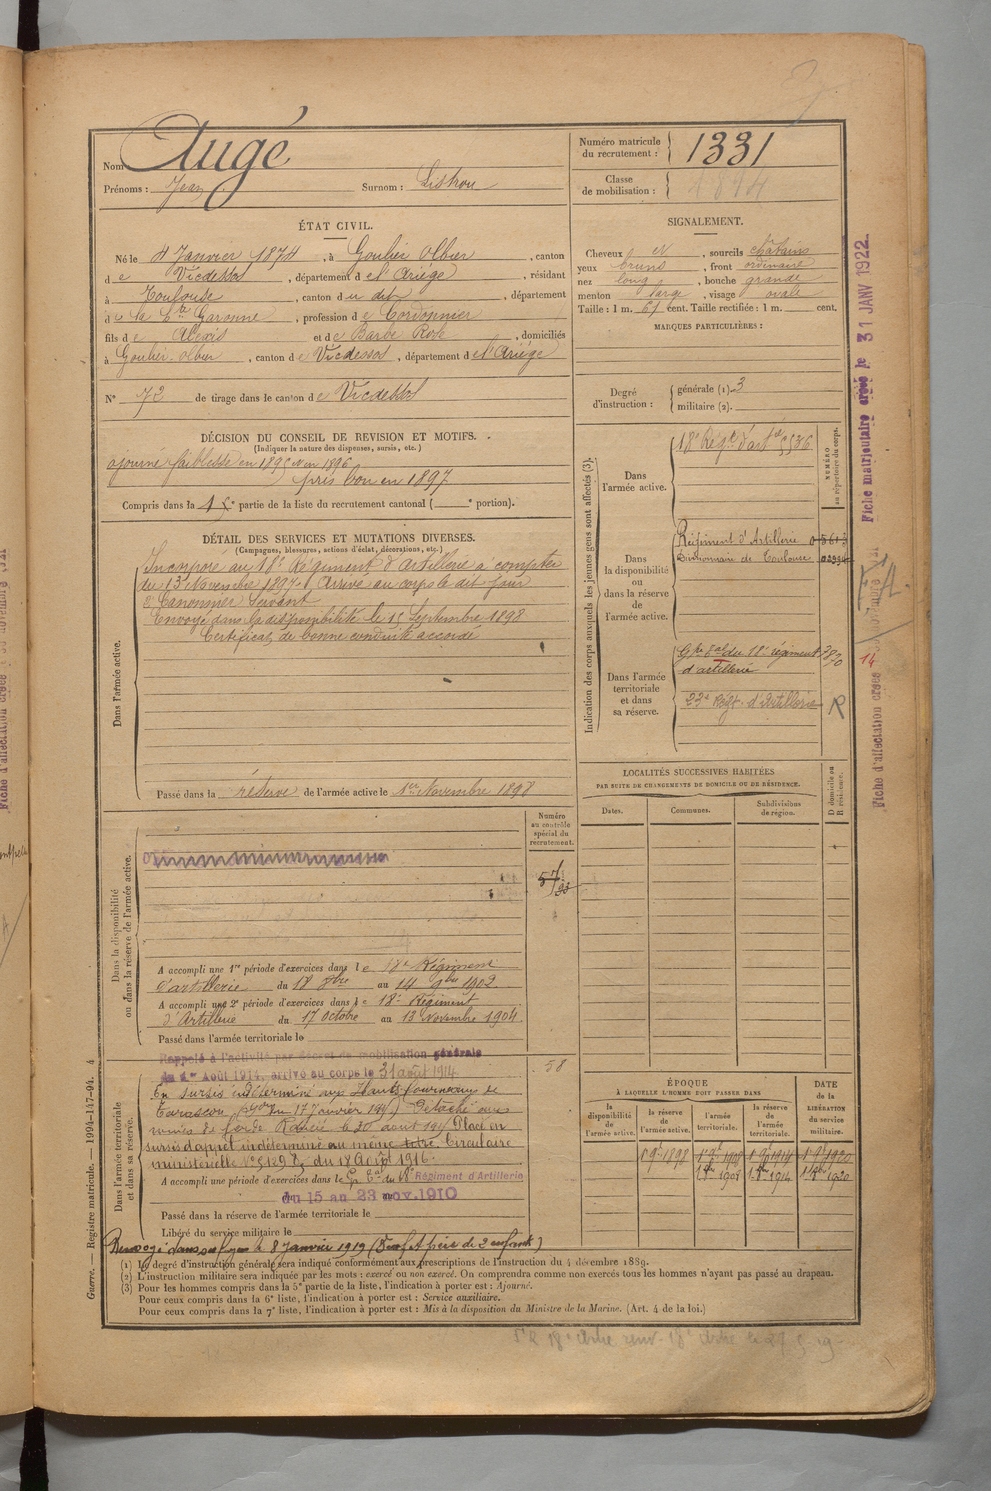 Nom Augé
Prénoms : Jean Surnom : Listrou
Numéro matricule du recrutement : 1331
Classe de mobilisation : 1894
ÉTAT CIVIL.
Né le 4 Janvier 1874, à Goulier Olbier, canton
de Vicdessos, département de l'Ariège, résidant
à Toulouse, canton du dit, département
de la Hte Garonne, profession de Cordonnier
fils de Alexis et de Barbe Rose, domiciliés
à Goulier-Olbier, canton de Vicdessos, département de l'Ariège
N° 72 de tirage dans le canton de Vicdessos
SIGNALEMENT.
Cheveux et, sourcils châtains
yeux bruns, front ordinaire
nez long, bouche grande
menton large, visage ovale
Taille : 1 m. 61 cent. Taille rectifiée : 1 m. cent.
MARQUES PARTICULIÈRES :
Degré d'instruction : générale (1). 3
militaire (2).
DÉCISION DU CONSEIL DE REVISION ET MOTIFS.
(Indiquer la nature des dispenses, sursis, etc.)
ajourné faiblesse en 1895 et en 1896
pris bon en 1897
Compris dans la 1e partie de la liste du recrutement cantonal ( e portion).
DÉTAIL DES SERVICES ET MUTATIONS DIVERSES.
(Campagnes, blessures, actions d'éclat, décorations, etc.)
Dans l'armée active.
Incorporé au 18e Régiment d'artillerie à compter
du 13 Novembre 1897. Arrivé au corps le dit jour
2e Canonnier Servant
Envoyé dans la disponibilité le 15 Septembre 1898
Certificat de bonne conduite accordé
Passé dans la réserve de l'armée active le 1er Novembre 1898
Indication des corps auxquels les jeunes gens sont affectés (3).
NUMÉRO au répertoire du corps.
Dans l'armée active.
18e Régt d'artie 5536
Dans la disponibilité ou dans la réserve de l'armée active.
Régiment d'Artillerie
Divisionnaire de Toulouse
Dans l'armée territoriale et dans sa réserve.
Gpe Tal du 18e régiment
d'artillerie
23e Régt. d'Artillerie R
LOCALITÉS SUCCESSIVES HABITÉES
PAR SUITE DE CHANGEMENTS DE DOMICILE OU DE RÉSIDENCE.
D domicile ou R résidence.
Dates. Communes. Subdivisions de région.
Numéro au contrôle spécial du recrutement.
58
Dans la disponibilité ou dans la réserve de l'armée active.
A accompli une 1re période d'exercices dans le 18e Régiment
d'artillerie du 18 8bre au 14 9bre 1902
A accompli une 2e période d'exercices dans le 18e Régiment
d'Artillerie du 17 octobre au 13 Novembre 1904
Passé dans l'armée territoriale le
Dans l'armée territoriale et dans sa réserve.
Rappelé à l'activité par décret de mobilisation générale
du 1er Août 1914, arrivé au corps le 31 août 1914
En sursis indéterminé aux Hauts fourneaux de
Tarascon Détaché aux
mines de fer de Rancié, le 30 août 191 Placé en
sursis d'appel indéterminé au même titre. Circulaire
ministérielle du 18 Août 1916.
A accompli une période d'exercices dans le Gr. Tal du 18e Régiment d'Artillerie
du 15 au 23 nov. 1910
Passé dans la réserve de l'armée territoriale le
Libéré du service militaire le
Renvoyé dans ses foyers le 8 janvier 1919 ( père de 2 enfants)
ÉPOQUE
À LAQUELLE L'HOMME DOIT PASSER DANS
la disponibilité de l'armée active. la réserve de l'armée active. l'armée territoriale. la réserve de l'armée territoriale.
DATE de la LIBÉRATION du service militaire.
1 9e 1898 1 9e 1908 1 9e 1914 1 9e 1920
(1) Le degré d'instruction générale sera indiqué conformément aux prescriptions de l'instruction du 4 décembre 1889.
(2) L'instruction militaire sera indiquée par les mots : exercé ou non exercé. On comprendra comme non exercés tous les hommes n'ayant pas passé au drapeau.
(3) Pour les hommes compris dans la 5e partie de la liste, l'indication à porter est : Ajourné.
Pour ceux compris dans la 6e liste, l'indication à porter est : Service auxiliaire.
Pour ceux compris dans la 7e liste, l'indication à porter est : Mis à la disposition du Ministre de la Marine. (Art. 4 de la loi.)
Guerre. — Registre matricule. — 1994-147-94. 4
Fiche matriculaire créée le 31 JANV 1922.
Fiche d'affectation créée